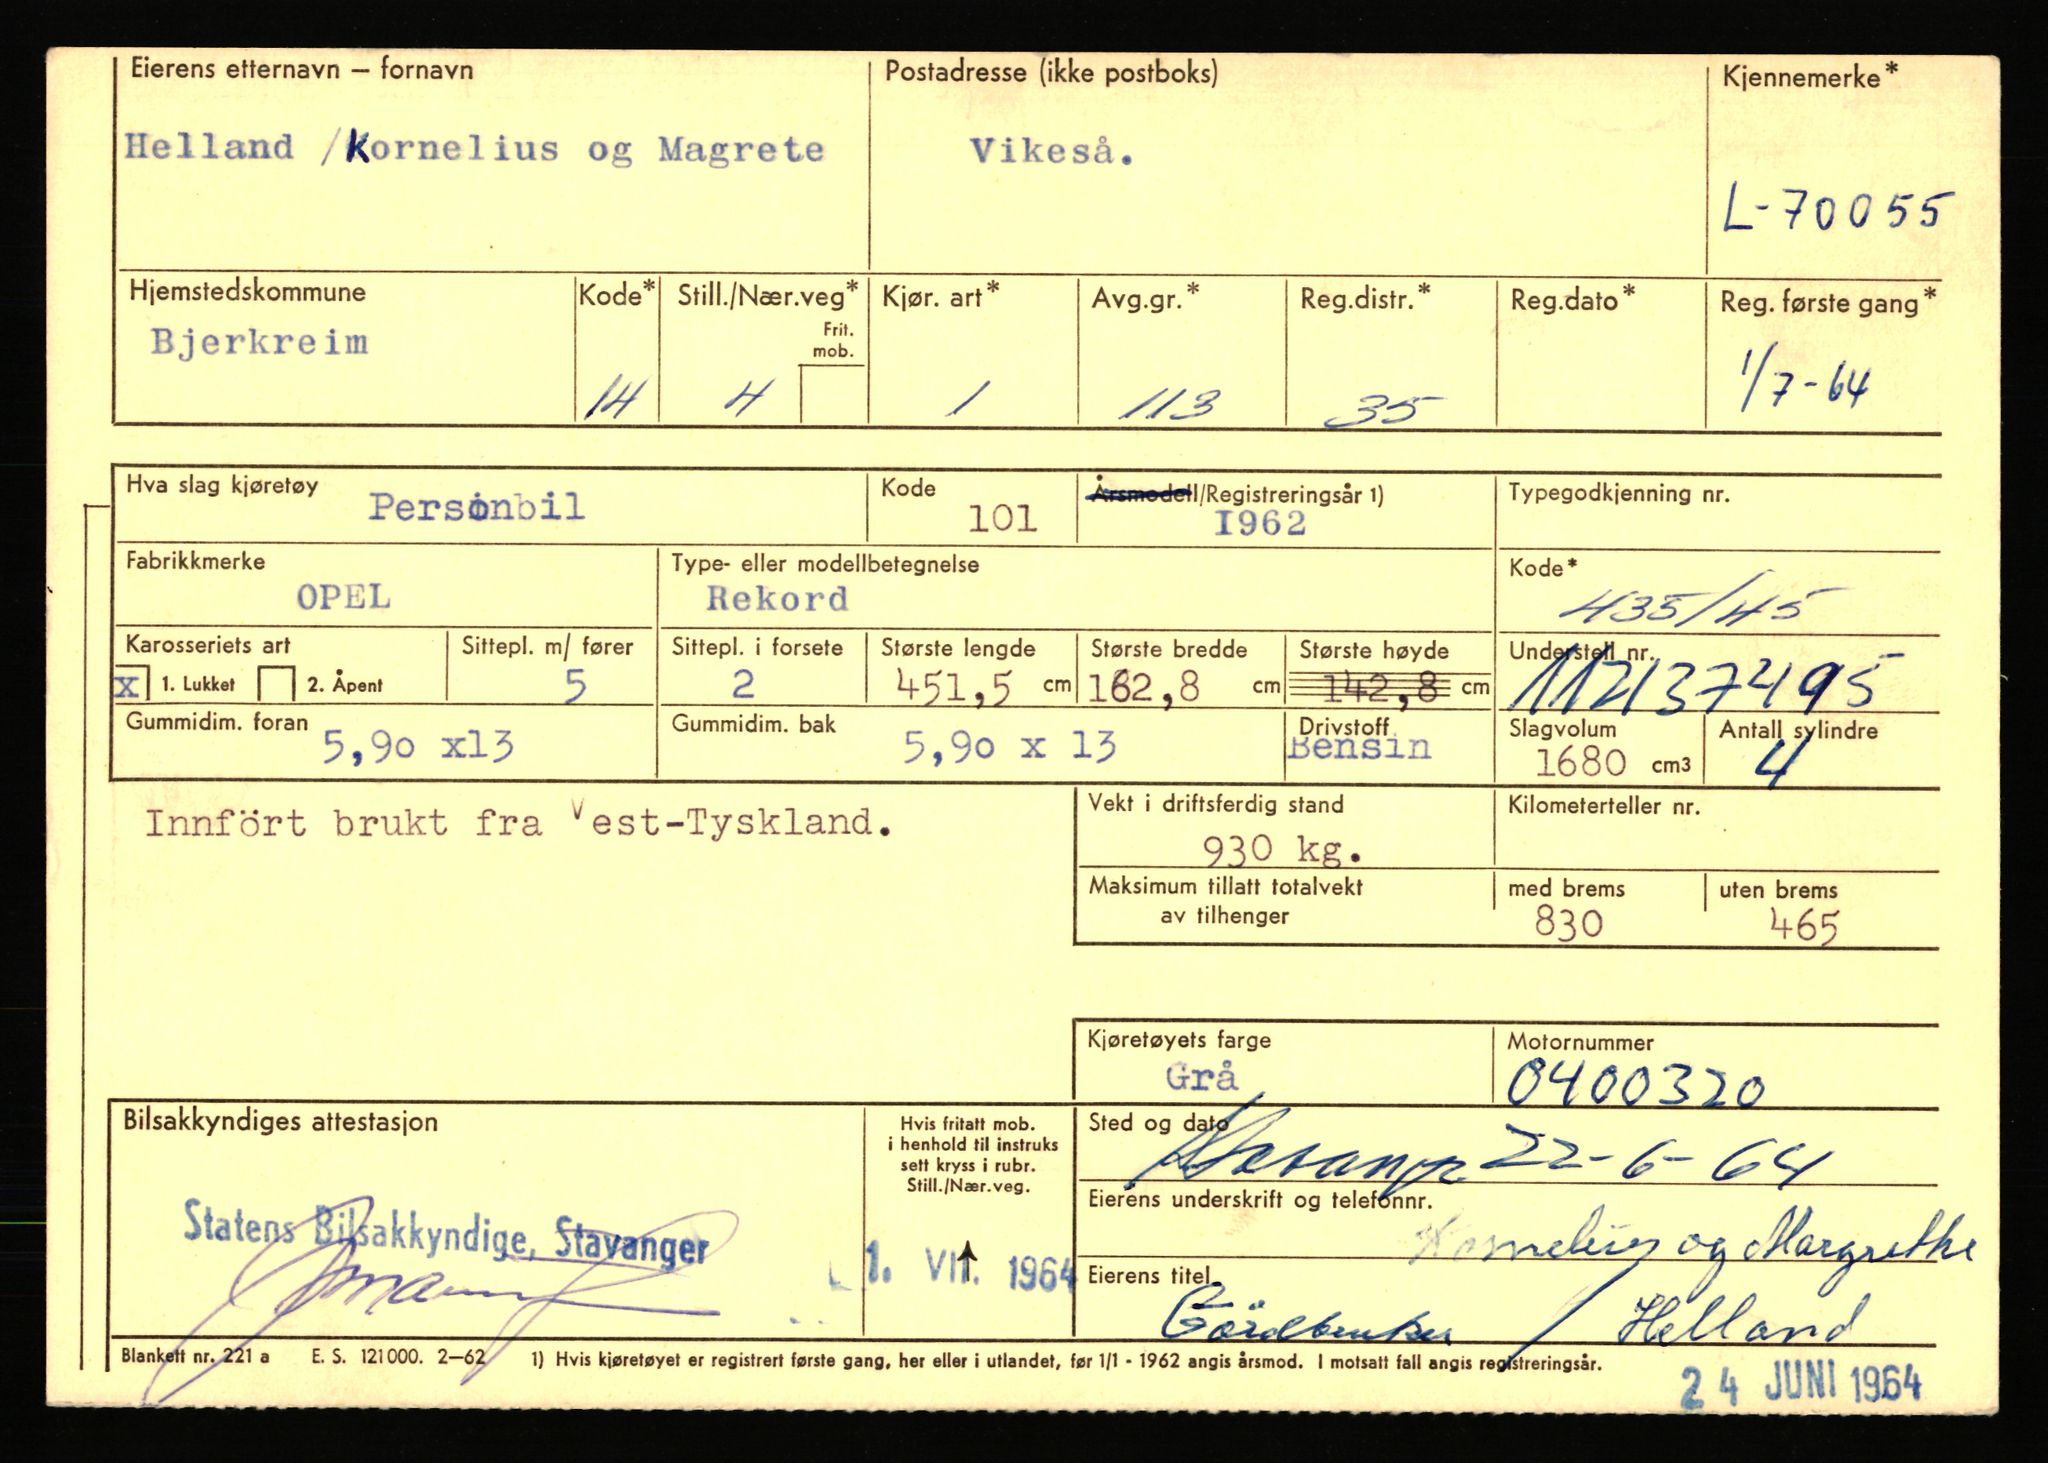 Eierens etternavn – fornavn Postadresse (ikke postboks) Kjennemerke*
Helland /Kornelius og Magrete Vikeså.
L-70055
Hjemstedskommune Kode* Still./Nær.veg* Kjør. art* Avg.gr.* Reg.distr.* Reg.dato* Reg. første gang*
Frit. mob.
Bjerkreim 14 4 1 113 35 1/7-64
Hva slag kjøretøy Kode Årsmodell/Registreringsår 1) Typegodkjenning nr.
Personbil 101 I962
Fabrikkmerke Type- eller modellbetegnelse Kode*
OPEL Rekord 435/45
Karosseriets art Sittepl. m/ fører Sittepl. i forsete Største lengde Største bredde Største høyde Understell nr.
x 1. Lukket 2. Åpent 5 2 451,5 cm 162,8 cm 142,8 cm 112137495
Gummidim. foran Gummidim. bak Drivstoff Slagvolum Antall sylindre
5,90 x13 5,90 x 13 Bensin 1680 cm3 4
Innfört brukt fra Vest-Tyskland.
Vekt i driftsferdig stand Kilometerteller nr.
930 kg.
Maksimum tillatt totalvekt med brems uten brems
av tilhenger 830 465
Kjøretøyets farge Motornummer
Grå 0400320
Bilsakkyndiges attestasjon
Hvis fritatt mob.
i henhold til instruks
sett kryss i rubr.
Still./Nær.veg.
Sted og dato
Stavanger 22-6-64
Eierens underskrift og telefonnr.
Statens Bilsakkyndige, Stavanger
1. VII. 1964
Kornelius og Margrethe
Eierens titel
Gårdbruker / Helland
Blankett nr. 221 a E. S. 121000. 2–62 1) Hvis kjøretøyet er registrert første gang, her eller i utlandet, før 1/1 - 1962 angis årsmod. I motsatt fall angis registreringsår.
24 JUNI 1964